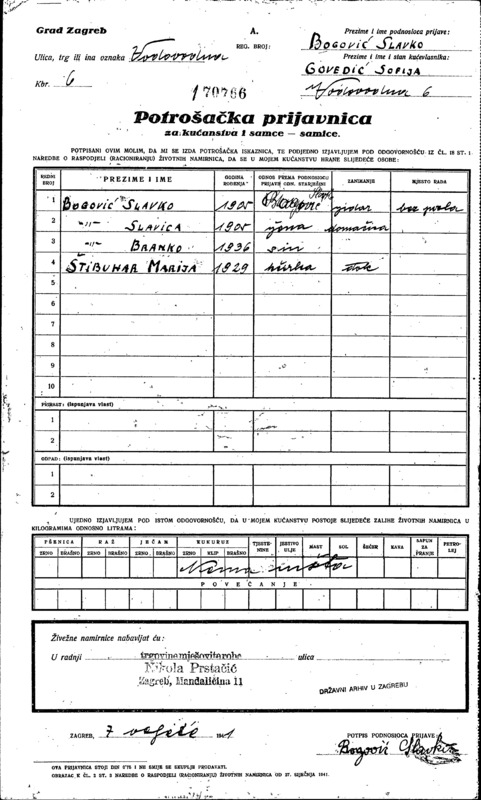 Grad Zagreb
A.
REG. BROJ:
Prezime i ime podnosioca prijave:
BOGOVIĆ SLAVKO
Ulica, trg ili ina oznaka Vodovodna
Prezime i ime i stan kućevlasnika:
GOVEDIĆ SOFIJA
Kbr. 6
Vodovodna 6
170766
Potrošačka prijavnica
za kućanstva i samce — samice.
POTPISANI OVIM MOLIM, DA MI SE IZDA POTROŠAČKA ISKAZNICA, TE PODJEDNO IZJAVLJUJEM POD ODGOVORNOŠĆU IZ ČL. 18 ST. 1
NAREDBE O RASPODJELI (RACIONIRANJU) ŽIVOTNIH NAMIRNICA, DA SE U MOJEM KUĆANSTVU HRANE SLIJEDEĆE OSOBE:
REDNI BROJ PREZIME I IME GODINA ROĐENJA ODNOS PREMA PODNOSIOCU PRIJAVE ODN. STARJEŠINI ZANIMANJE MJESTO RADA
1 BOGOVIĆ SLAVKO 1905 Bogović Slavko bez posla
2 -"- SLAVICA 1905 žena domaćica
3 -"- BRANKO 1936 sin
4 ŠTIBUHAR MARIJA 1929
5
6
7
8
9
10
PRIRAST: (ispunjava vlast)
1
2
OTPAD: (ispunjava vlast)
1
2
UJEDNO IZJAVLJUJEM POD ISTOM ODGOVORNOŠĆU, DA U MOJEM KUĆANSTVU POSTOJE SLIJEDEĆE ZALIHE ŽIVOTNIH NAMIRNICA U
KILOGRAMIMA ODNOSNO LITRAMA:
PŠENICA RAŽ JEČAM KUKURUZ TJESTENINE JESTIVO ULJE MAST SOL ŠEĆER KAVA SAPUN ZA PRANJE PETROLEJ
ZRNO BRAŠNO ZRNO BRAŠNO ZRNO BRAŠNO ZRNO KLIP BRAŠNO
Nema ništa
POVEĆANJE
Živežne namirnice nabavljat ću:
U radnji trgovina mješovite robe ulica
Nikola Prstačić
Zagreb, Mandaličina 11
DRŽAVNI ARHIV U ZAGREBU
ZAGREB, 7 veljače 1941
POTPIS PODNOSIOCA PRIJAVE
Bogović Slavko
OVA PRIJAVNICA STOJI DIN 0'75 I NE SMIJE SE SKUPLJE PRODAVATI.
OBRAZAC K ČL. 2 ST. 3 NAREDBE O RASPODJELI (RACIONIRANJU) ŽIVOTNIH NAMIRNICA OD 27. SIJEČNJA 1941.